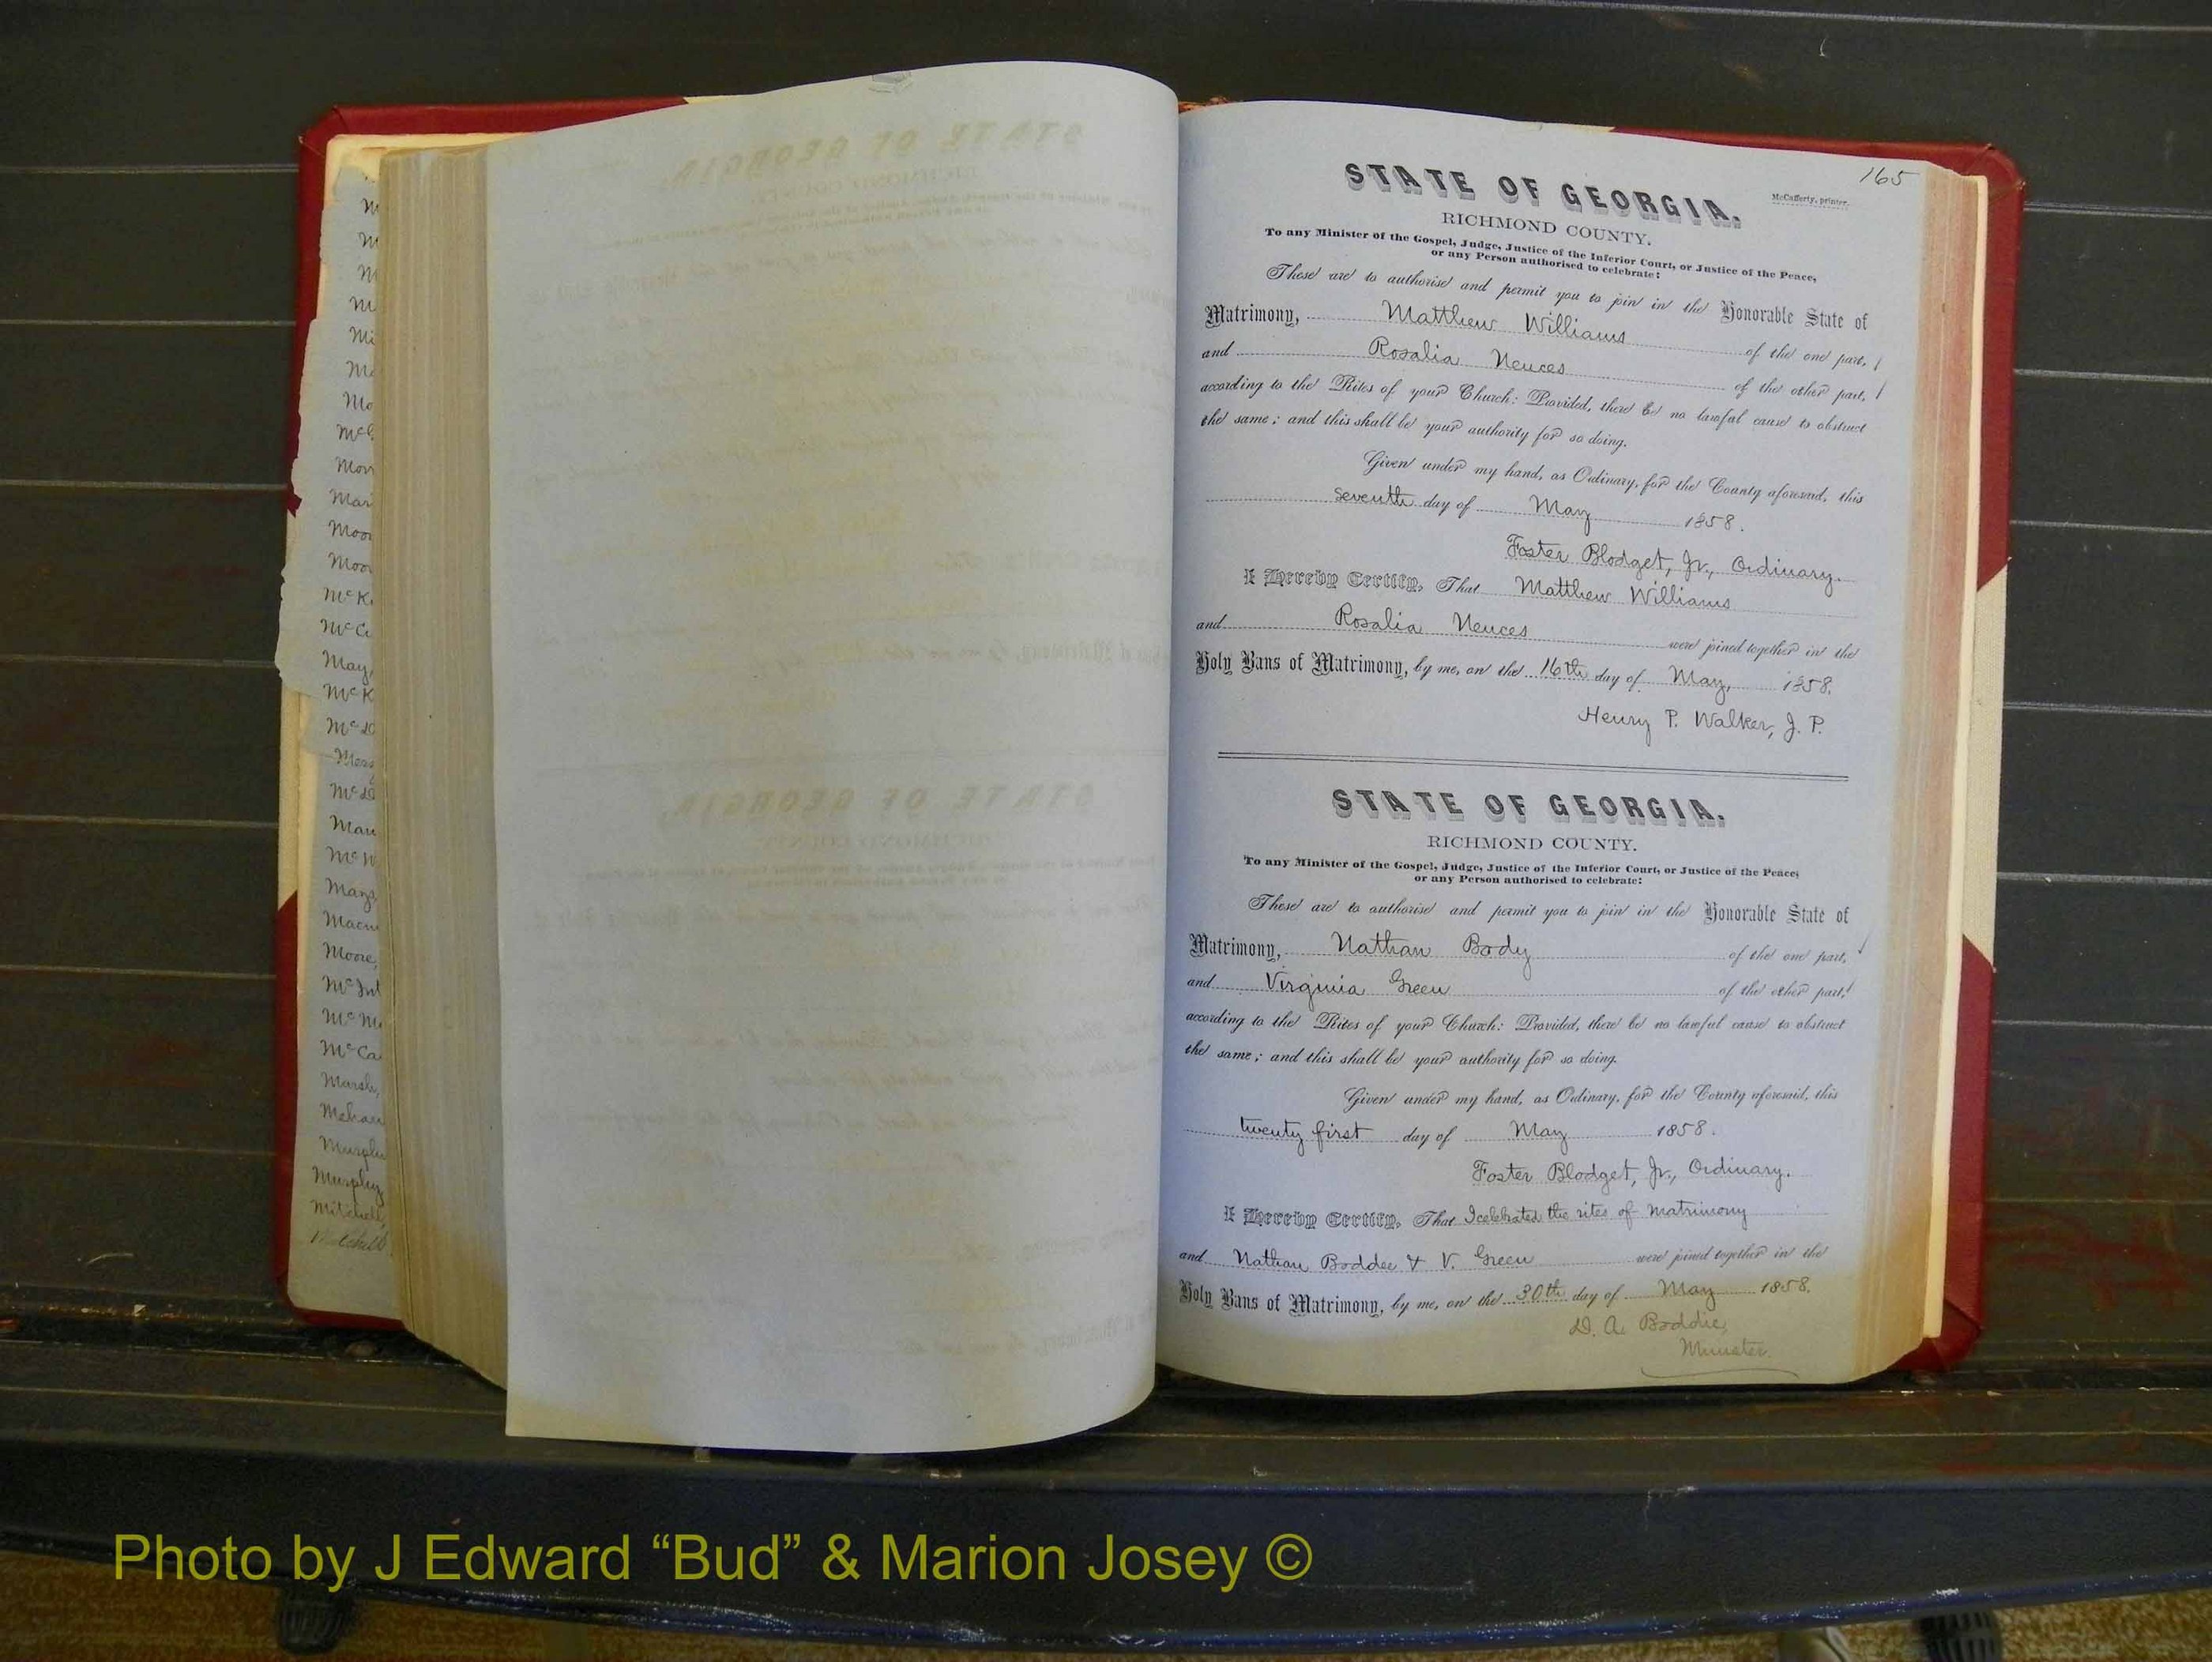 165
STATE OF GEORGIA.
McCafferty, printer.
RICHMOND COUNTY.
To any Minister of the Gospel, Judge, Justice of the Inferior Court, or Justice of the Peace,
or any Person authorised to celebrate:
These are to authorise and permit you to join in the Honorable State of
Matrimony, Matthew Williams of the one part,
and Rosalia Neuces of the other part,
according to the Rites of your Church: Provided, there be no lawful cause to obstruct
the same; and this shall be your authority for so doing.
Given under my hand, as Ordinary, for the County aforesaid, this
seventh day of May 1858.
Foster Blodget, Jr., Ordinary.
I Hereby Certify, That Matthew Williams
and Rosalia Neuces were joined together in the
Holy Bans of Matrimony, by me, on the 16th day of May, 1858.
Henry P. Walker, J. P.
STATE OF GEORGIA.
RICHMOND COUNTY.
To any Minister of the Gospel, Judge, Justice of the Inferior Court, or Justice of the Peace,
or any Person authorised to celebrate:
These are to authorise and permit you to join in the Honorable State of
Matrimony, Nathan Body of the one part,
and Virginia Green of the other part,
according to the Rites of your Church: Provided, there be no lawful cause to obstruct
the same; and this shall be your authority for so doing.
Given under my hand, as Ordinary, for the County aforesaid, this
twenty first day of May 1858.
Foster Blodget, Jr., Ordinary.
I Hereby Certify, That I celebrated the rites of Matrimony
and Nathan Boddee & V. Green were joined together in the
Holy Bans of Matrimony, by me, on the 30th day of May 1858.
D. A. Boddie,
Minister.
May,
Moore,
Murphy
Mitchell,
Photo by J Edward “Bud” & Marion Josey ©